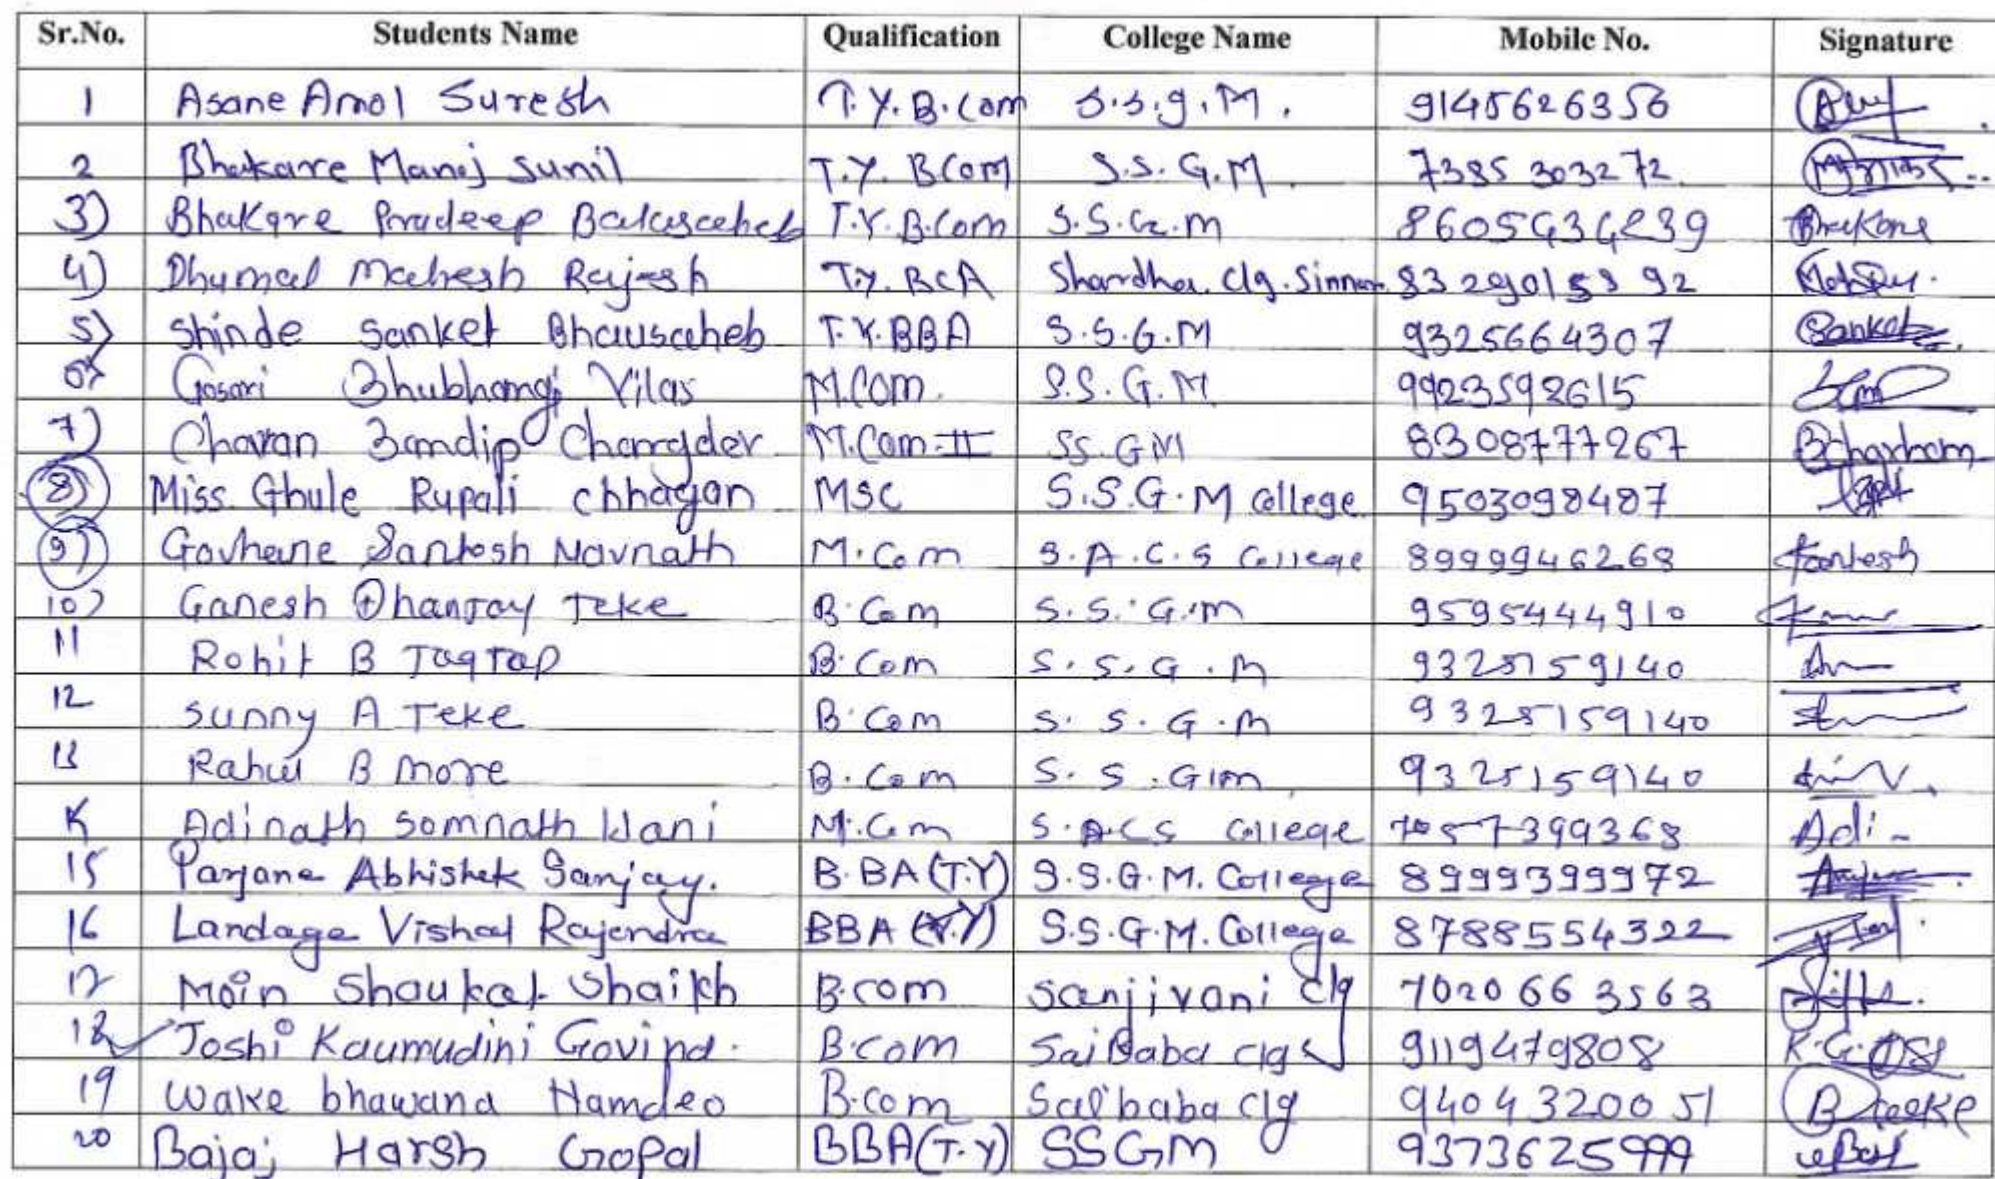 Sr.No. Students Name Qualification College Name Mobile No. Signature
1 Asane Amol Suresh T.Y.B.Com S.S.G.M. 9145626356
2 Bhakare Manoj Sunil T.Y. BCom S.S.G.M 7385 303272
3) Bhakare Pradeep Balasaheb T.Y.B.Com S.S.G.M Bhakare
4) Dhumal Mahesh Rajesh T.Y. BCA Shardha. Clg. Sinnar
5) Shinde Sanket Bhausaheb T.Y.BBA S.S.G.M 9325664307 Sanket
6) Gosavi Shubhangi Vilas M.COM. S.S.G.M 9923592615
7) Chavan Sandip Changdev M.Com-II SS.GM 8308777267
8) Miss. Ghule Rupali chhagan MSC S.S.G.M College 9503098487
9) Gavhane Santosh Navnath M.Com S.A.C.S College 8999946268 Santosh
10) Ganesh Dhanjay Teke B.Com S.S.G.M 9595444910
11 Rohit B Jagtap B.Com S.S.G.M 9325159140
12 Sunny A Teke B.Com S.S.G.M 9325159140
13 Rahul B More B.Com S.S.G.M 9325159140
Adinath Somnath Wani M.Com S.ACS College 7057399368 Adi
15 Parjane Abhishek Sanjay. B.BA(T.Y) S.S.G.M. College 8999399972
16 Landage Vishal Rajendra BBA (T.Y) S.S.G.M. College 8788554322
17 Moin Shaukat Shaikh B.com Sanjivani Clg 7020 663563
18 Joshi Kaumudini Govind. B.com SaiBaba clg 9119479808
19 Wake bhawana Namdeo B.com Saibaba clg 9404320051
20 Bajaj Harsh Gopal BBA(T.Y) SSGM 9373625999